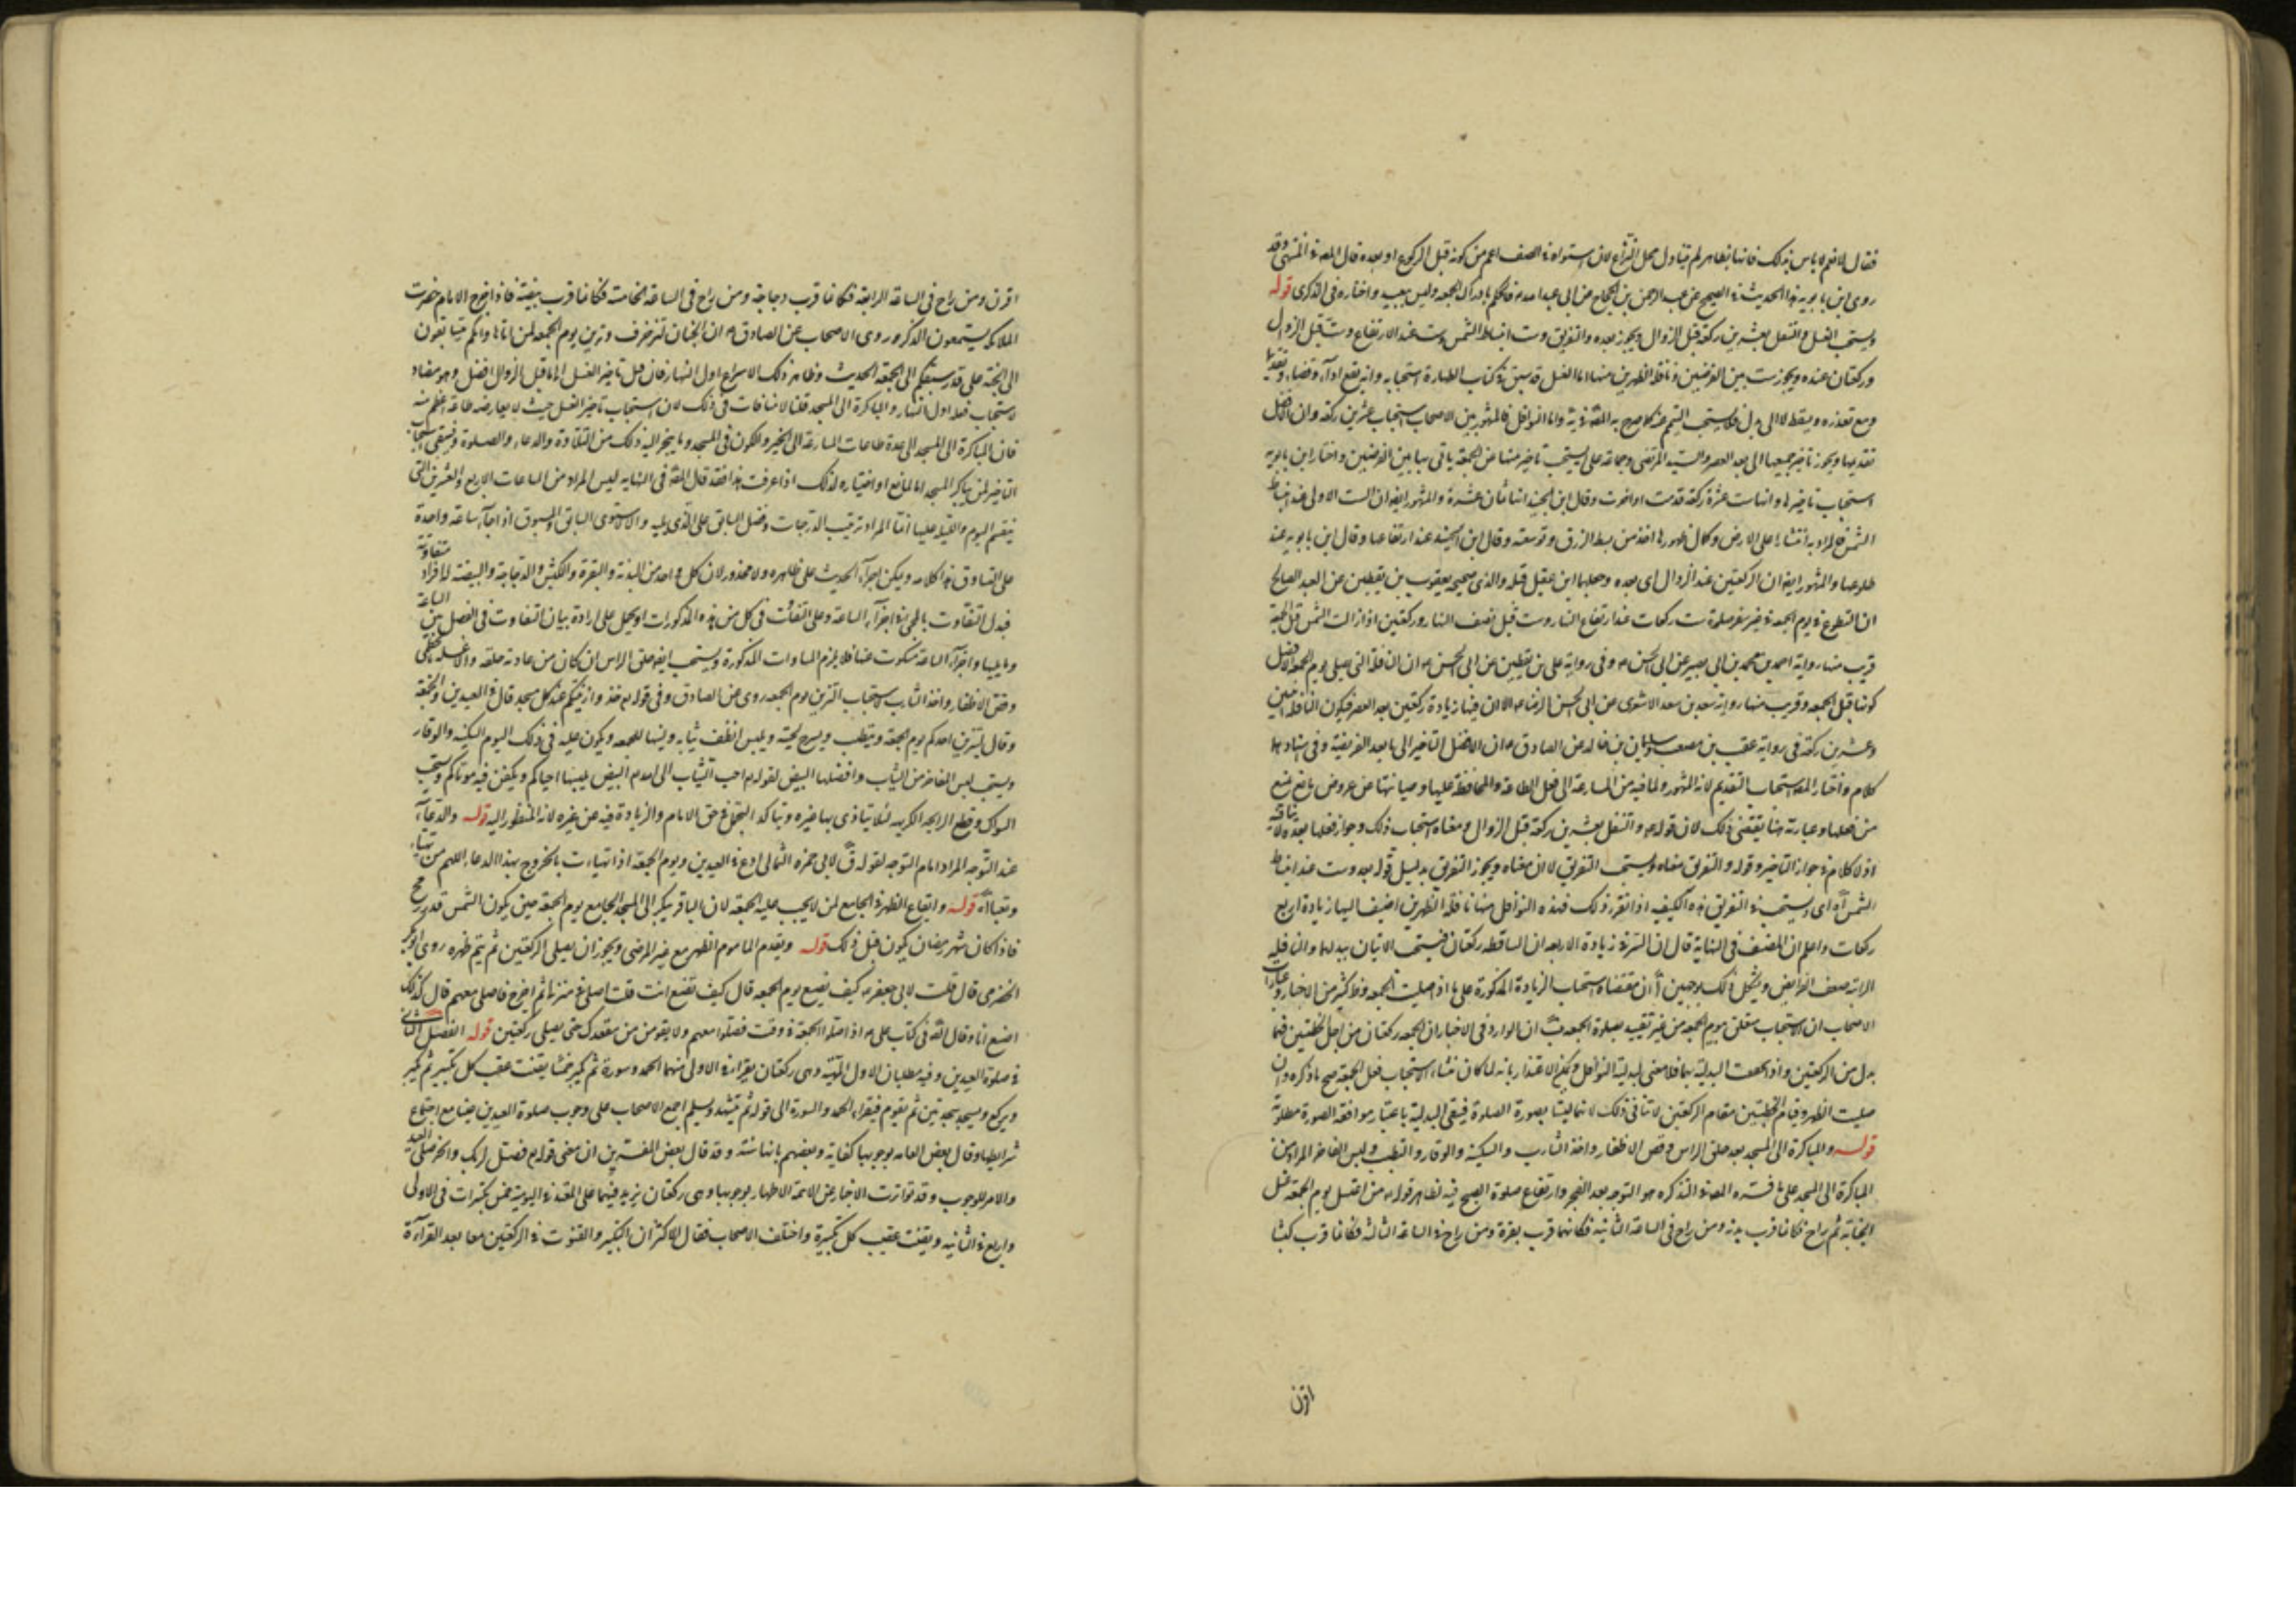 فقال لا فهم لا باس بذلك فانها بظاهرها لم تتناول محل النزاع لان استواءه في الصف اعم من كونه قبل الركوع او بعده قال المصنف في المنتهى وقد
روى ابن بابويه هذا الحديث في الصحيح عن عبد الرحمن بن الحجاج عن ابي عبد الله فالحكم بادراك الجمعة وليس ببعيد واختاره في الذكرى قوله
ويستحب الغسل والتنفل بعشرين ركعة قبل الزوال ويجوز بعده والتفريق وست انبساط الشمس وست عند الارتفاع وست قبل الزوال
وركعتان عنده ويجوز ست بين الفرضين ونافلة الظهرين منها اما الغسل قد سبق في كتاب الطهارة استحبابه وانه يقع اداء وقضاء وتقديما
ومع تعذره ويسقط لا الى بدل فلا يستحب التيمم عنه كما صرح به واما النوافل فالمشهور بين الاصحاب استحباب عشرين ركعة وان الافضل
تقديمها ويجوز تاخير جميعها الى بعد العصر والسيد المرتضى وجماعة على يستحب تاخير ست منها عن الجمعة ياتي بها بين الفرضين واختار ابن بابويه
استحباب تاخيرها وانها ست عشرة ركعة قدمت او اخرت وقال ابن الجنيد انها ثمان عشرة والمشهور ايضا ان الست الاولى عند انبساط
الشمس فالمراد به انتشارها على الارض وكمال ظهورها اخذ من بسط الرزق وتوسعته وقال ابن الجنيد عند ارتفاعها وقال ابن بابويه عند
طلوعها والمشهور ايضا ان الركعتين عند الزوال اي بعده وجعلها ابن عقيل قبله والذي صحيحة يعقوب بن يقطين عن العبد الصالح
ان التطوع في يوم الجمعة في غير سفر صلوة ست ركعات عند ارتفاع النهار وست قبل نصف النهار وركعتين اذا زالت الشمس قبل الجمعة
قريب منها رواية احمد بن محمد بن ابي بصير عن ابي الحسن وفي رواية علي بن يقطين عن ابي الحسن ان النافلة التي تصلى يوم الجمعة الافضل
كونها قبل الجمعة وقريب منها رواية سعد بن سعد الاشعري عن ابي الحسن الرضا الا ان فيها زيادة ركعتين بعد العصر فيكون النافلة اثنين
وعشرين ركعة وفي رواية عقبة بن مصعب وسليمان بن خالد عن الصادق ان الافضل التاخير الى ما بعد الفريضة وفي اسنادها
كلام واختار المصنف استحباب التقديم لانه المشهور ولما فيه من المسارعة الى فعل الطاعة والمحافظة عليها وصيانتها عن عروض مانع يمنع
من فعلها وعبارته هنا يقتضي ذلك لان قوله والتنفل بعشرين ركعة قبل الزوال معناه استحباب ذلك وجواز فعلها بعده لا ينافيه
اذ لا كلام في جواز التاخير وقوله والتفريق معناه ويستحب التفريق لا ان معناه ويجوز التفريق بدليل قوله بعد وست عند انبساط
الشمس اه اي ويستحب في التفريق هذه الكيفية اذا تقرر ذلك فهذه النوافل منها نافلة الظهرين اضيف اليها زيادة اربع
ركعات واعلم ان المصنف في النهاية قال ان السر في زيادة الاربعة ان الساقط ركعتان فيستحب الاتيان ببدلهما والنافلة
الراتبة ضعف الفرائض ويشكل ذلك بوجهين أ ان مقتضاه استحباب الزيادة المذكورة على ما اذا صليت الجمعة وظاهر كثير من الاخبار وعبارات
الاصحاب ان الاستحباب متعلق بيوم الجمعة من غير تقييد بصلوة الجمعة ب ان الوارد في الاخبار ان الجمعة ركعتان من اجل الخطبتين فهما
بدل من الركعتين واذا تحققت البدلية بهما فلا معنى لبدلية النوافل ويمكن الاعتذار بانه لما كان منشاء الاستحباب فعل الجمعة صح ما ذكره وان
صليت الظهر وقيام الخطبتين مقام الركعتين لا تنافي ذلك لانهما ليستا بصورة الصلوة فيبقى البدلية باعتبار موافقة الصورة مطلوبة
قوله والمباكرة الى المسجد بعد حلق الراس وقص الاظفار واخذ الشارب والسكينة والوقار والتطيب ولبس الفاخر المراد من
المباكرة الى المسجد على ما فسره المصنف في التذكرة هو التوجه بعد الفجر وارتفاع صلوة الصبح فيه لظاهر قوله من اغتسل يوم الجمعة غسل
الجنابة ثم راح فكانما قرب بدنة ومن راح في الساعة الثانية فكانما قرب بقرة ومن راح في الساعة الثالثة فكانما قرب كبشا
اقرن
اقرن ومن راح في الساعة الرابعة فكانما قرب دجاجة ومن راح في الساعة الخامسة فكانما قرب بيضة فاذا خرج الامام حضرت
الملائكة يستمعون الذكر وروى الاصحاب عن الصادق ان الجنان لتزخرف وتزين يوم الجمعة لمن اتاها وانكم تتسابقون
الى الجنة على قدر سبقكم الى الجمعة الحديث وظاهر ذلك الاسراع اول النهار فان قيل تاخير الغسل الى ما قبل الزوال افضل وهو مضاد
لاستحباب فعله اول النهار والمباكرة الى المسجد قلنا لا منافات في ذلك لان استحباب تاخير الغسل حيث لا يعارضه طاعة اعظم منه
فان المباكرة الى المسجد الى عدة طاعات المسارعة الى الخير والكون في المسجد وما ينجر اليه ذلك من التلاوة والدعاء والصلوة فيبقى استحباب
التاخير لمن يباكر المسجد اما لمانع او اختياره لذلك اذا عرفت هذا فقد قال المصنف في النهاية ليس المراد من الساعات الاربع والعشرين التي
ينقسم اليوم والليلة عليها انما المراد ترتيب الدرجات وفضل السابق على الذي يليه والا لاستوى السابق والمسبوق اذا جاءا ساعة واحدة
على التساوق هذا كلامه ويمكن اجراء الحديث على ظاهره ولا محذور لان كل واحد من البدنة والبقرة والكبش والدجاجة والبيضة له افراد متفاوتة
فبدل التفاوت بالمجئ في اجزاء الساعة وعلى التفاوت في كل من هذه المذكورات او يحمل على ارادة بيان التفاوت في الفضل بين الساعة
وما يليها واجزاء الساعة مسكوت عنها فلا يلزم المساوات المذكورة ويستحب ايضا حلق الراس ان كان من عادته حلقه والا غسله بالخطمي
وقص الاظفار واخذ الشارب لاستحباب التزين يوم الجمعة روى عن الصادق وفي قوله خذوا زينتكم عند كل مسجد قال في العيدين والجمعة
وقال ليتزين احدكم يوم الجمعة ويتطيب ويسرح لحيته ويلبس انظف ثيابه وليتهيأ للجمعة ويكون عليه في ذلك اليوم السكينة والوقار
ويستحب لبس الفاخر من الثياب وافضلها البيض لقوله احب الثياب الى الله البيض يلبسها احياكم ويكفن فيه موتاكم ويستحب
السواك وقطع الرايحة الكريهة لئلا يتاذى بها غيره ويتاكد التجمل في حق الامام والزيادة فيه عن غيره لانه المنظور اليه قوله والدعاء
عند التوجه المراد امام التوجه لقوله لابي حمزة الثمالي ادع في العيدين ويوم الجمعة اذا تهيأت بالخروج بهذا الدعاء اللهم من تهيأ
وتعبأ اه قوله وايقاع الظهر في الجامع لمن لا يجب عليه الجمعة لان الباقر يبكر الى المسجد الجامع يوم الجمعة حين يكون الشمس قدر رمح
فاذا كان شهر رمضان يكون قبل ذلك قوله ويقدم الماموم الظهر مع غير المرضي ويجوز ان يصلي الركعتين ثم يتم ظهره روى ابو بكر
الحضرمي قال قلت لابي جعفر كيف تصنع يوم الجمعة قال كيف تصنع انت قلت اصلي في منزلي ثم اخرج فاصلي معهم قال كذلك
اصنع انا وقال انه في كتاب علي اذا صلوا الجمعة في وقت فصلوا معهم ولا يقومن من مقعدك حتى يصلي ركعتين قوله الفصل الثاني
في صلوة العيدين وفيه مطلبان الاول المهية وهي ركعتان يقرا في الاولى منهما الحمد وسورة ثم يكبر خمسا يقنت عقيب كل تكبير ثم يكبر
ويركع ويسجد سجدتين ثم يقوم فيقراء الحمد والسورة الى قوله ثم يتشهد ويسلم اجمع الاصحاب على وجوب صلوة العيدين عينا مع اجتماع
شرايطها وقال بعض العامه بوجوبها كفاية وبعضهم بانها سنة وقد قال بعض المفسرين ان معنى قوله فصل لربك وانحر صلى العيد
والامر للوجوب وقد تواترت الاخبار عن الائمة الاطهار بوجوبها وهي ركعتان يزيد فيهما على المعتد في اليومية خمس تكبيرات في الاولى
واربع في الثانية ويقنت عقيب كل تكبيرة واختلف الاصحاب فقال الاكثر ان التكبير والقنوت في الركعتين معا بعد القراءة